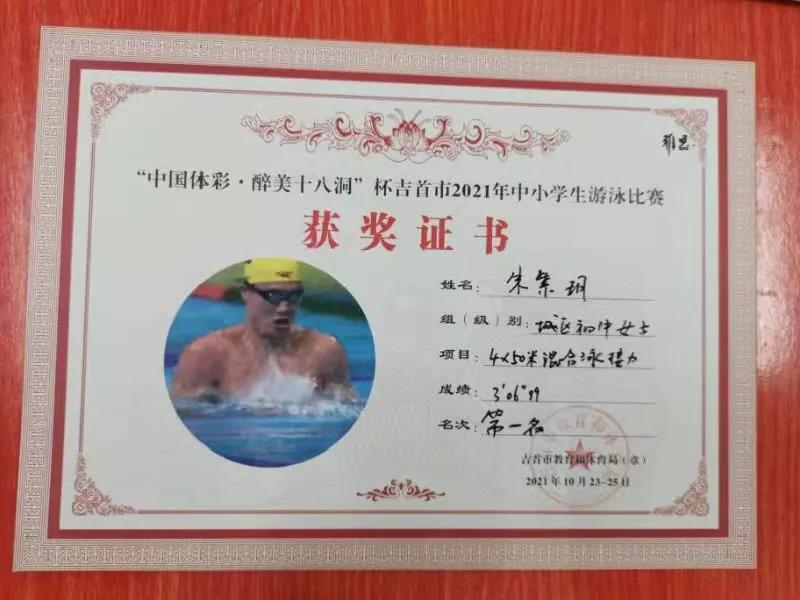 雅思
“中国体彩·醉美十八洞”杯吉首市2021年中小学生游泳比赛
获奖证书
姓名：朱集玥
组（级）别：城区初中女子
项目：4×50米混合泳接力
成绩：3′06″99
名次：第一名
吉首市教育和体育局（章）
2021年10月23-25日